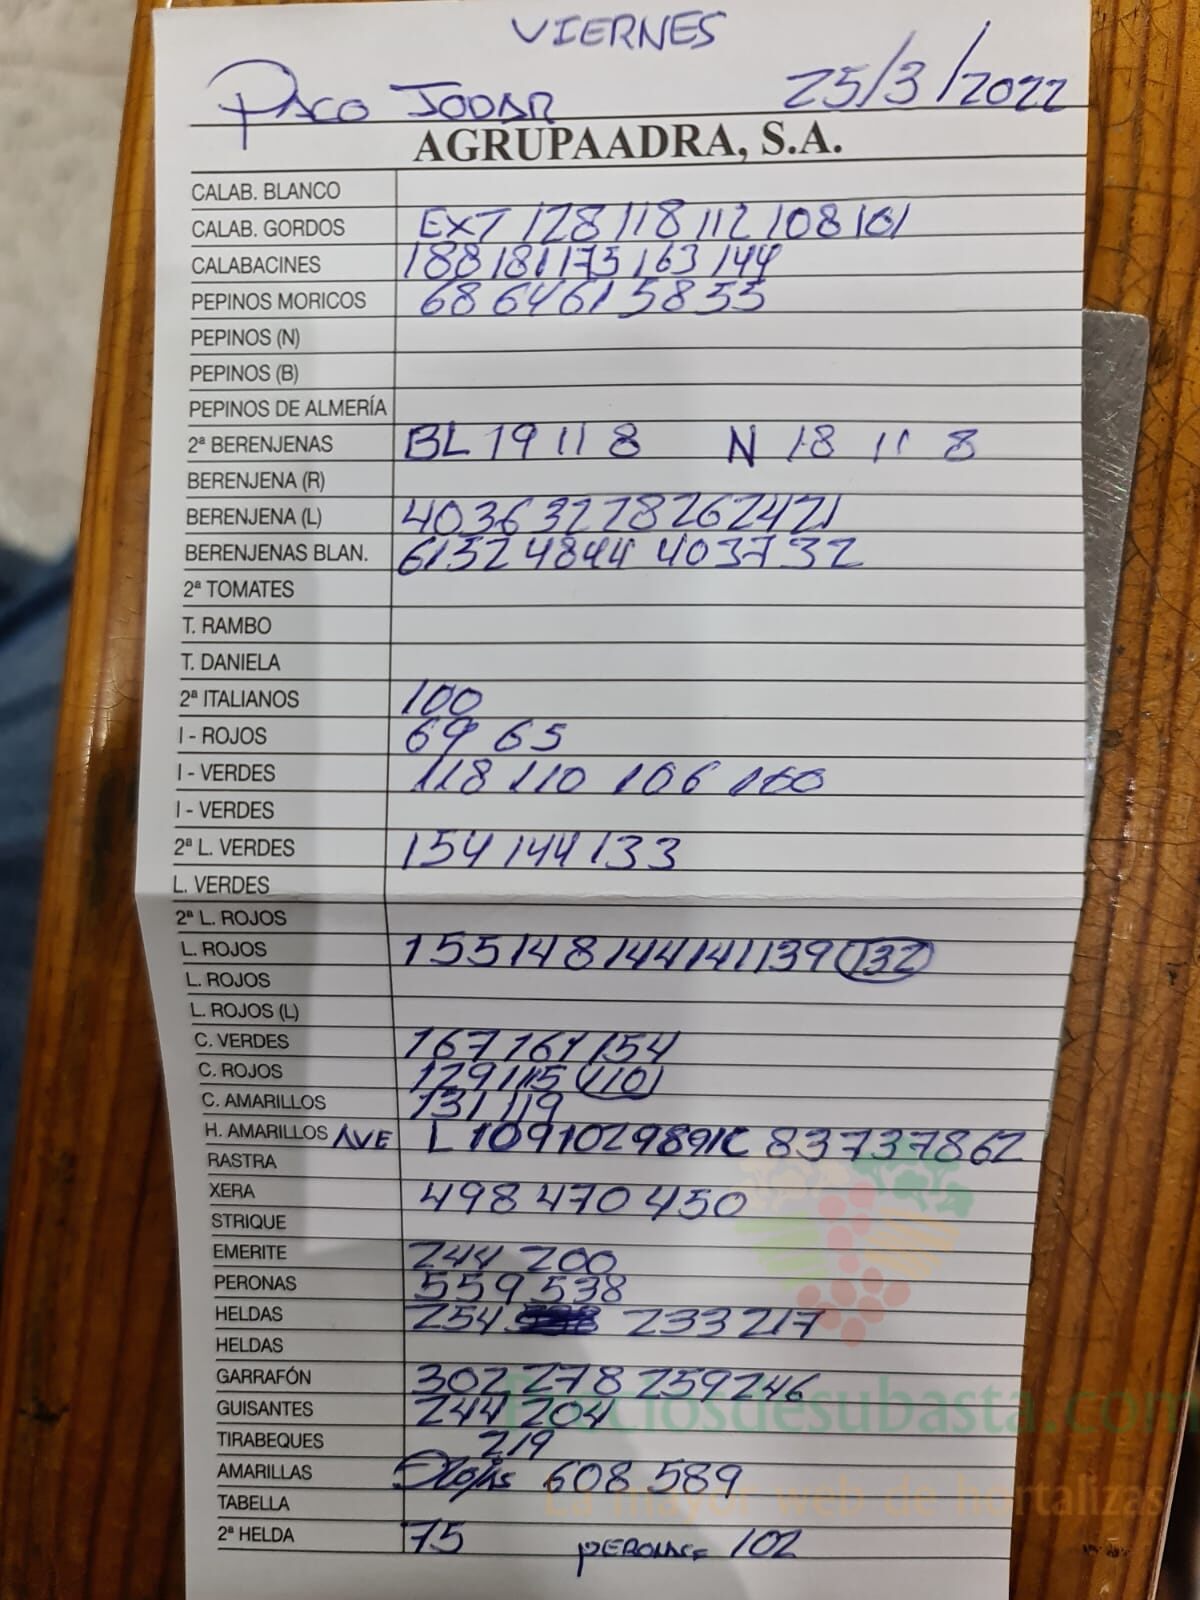 VIERNES
PACO JODAR 25/3/2022
AGRUPAADRA, S.A.
CALAB. BLANCO
CALAB. GORDOS EXT 128 118 112 108 101
CALABACINES 188 181 175 163 144
PEPINOS MORICOS 68 64 61 58 55
PEPINOS (N)
PEPINOS (B)
PEPINOS DE ALMERÍA
2ª BERENJENAS BL 19 11 8 N 18 11 8
BERENJENA (R)
BERENJENA (L) 40 36 32 28 26 24 21
BERENJENAS BLAN. 61 52 48 44 40 37 32
2ª TOMATES
T. RAMBO
T. DANIELA
2ª ITALIANOS 100
I - ROJOS 69 65
I - VERDES 118 110 106 100
I - VERDES
2ª L. VERDES 154 144 133
L. VERDES
2ª L. ROJOS
L. ROJOS 155 148 144 141 139 132
L. ROJOS
L. ROJOS (L)
C. VERDES 167 161 154
C. ROJOS 129 115 110
C. AMARILLOS 131 119
H. AMARILLOS AVE L 109 102 98 91 C 83 73 78 62
RASTRA
XERA 498 470 450
STRIQUE
EMERITE 244 200
PERONAS 559 538
HELDAS 254 233 217
HELDAS
GARRAFÓN 302 278 259 246
GUISANTES 244 204
TIRABEQUES 219
AMARILLAS 608 589
TABELLA
2ª HELDA 75 PERONAS 102
Preciosdesubasta.com
La mayor web de hortalizas